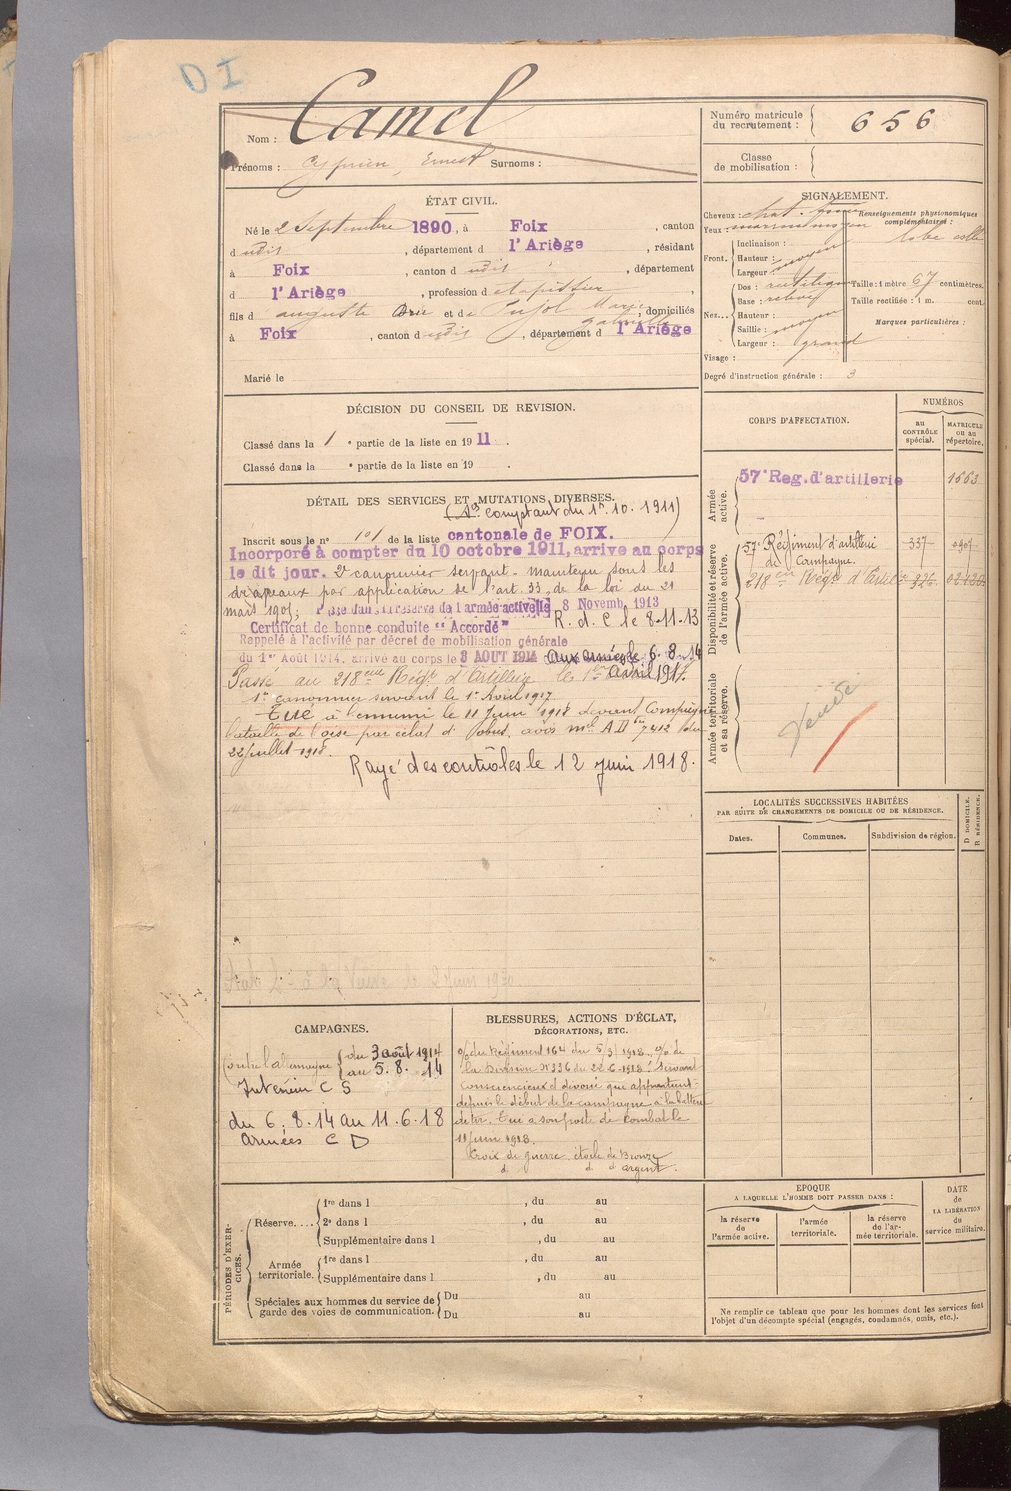 DI
Nom : Camel
Prénoms : Cyprien, Ernest Surnoms :
Numéro matricule du recrutement : 656
Classe de mobilisation :
ÉTAT CIVIL.
Né le 2 Septembre 1890, à Foix, canton
dudit, département d l'Ariège, résidant
à Foix, canton dudit, département
d l'Ariège, profession d
fils d auguste et de Pujol Marie, domiciliés
à Foix, canton dudit, département d l'Ariège
Marié le
SIGNALEMENT.
Cheveux : chat.
Yeux : marron moyen
Renseignements physionomiques complémentaires :
lobe collé
Front. Inclinaison :
Hauteur : moyen
Largeur :
Nez... Dos : rectiligne
Base : relevé
Hauteur :
Saillie : moyen
Largeur :
Visage : grand
Taille : 1 mètre 67 centimètres.
Taille rectifiée : 1 m. cent.
Marques particulières :
Degré d'instruction générale : 3
DÉCISION DU CONSEIL DE REVISION.
Classé dans la 1e partie de la liste en 1911.
Classé dans la e partie de la liste en 19 .
DÉTAIL DES SERVICES ET MUTATIONS DIVERSES.
(Sce comptant du 1er. 10. 1911)
Inscrit sous le n° 101 de la liste cantonale de FOIX.
Incorporé à compter du 10 octobre 1911, arrive au corps
le dit jour. 2e canonnier servant. Maintenu sous les
drapeaux par application de l'art. 33 de la loi du 21
mars 1905; Passé dans la réserve de l'armée active le 8 Novemb. 1913
Certificat de bonne conduite "Accordé" R. d. C le 8-11-13
Rappelé à l'activité par décret de mobilisation générale
du 1er Août 1914. arrivé au corps le 3 AOUT 1914 Aux armées le 6-8-14
Passé au 218eme Régt d'Artillerie le 1er avril 1917.
1er canonnier servant le 1er Avril 1917
Tué à l'ennemi le 11 Juin 1918 devant Compiègne
bataille de l'oise par éclat d'obus, avis mel AD 7412 du
22 juillet 1918.
Rayé des contrôles le 12 juin 1918.
CORPS D'AFFECTATION.
NUMÉROS
au CONTRÔLE spécial.
MATRICULE ou au répertoire.
Armée active.
57e Reg. d'artillerie 1663
Disponibilité et réserve de l'armée active.
57e Régiment d'artillerie de Campagne. 337
218eme Régt d'Artie 326
Armée territoriale et sa réserve.
LOCALITÉS SUCCESSIVES HABITÉES
PAR SUITE DE CHANGEMENTS DE DOMICILE OU DE RÉSIDENCE.
Dates.
Communes.
Subdivision de région.
D DOMICILE. R RÉSIDENCE.
CAMPAGNES.
Contre l'allemagne du 3 août 1914
au 5. 8. 14
Intérieur C S
du 6. 8. 14 au 11. 6. 18
Armées C D
BLESSURES, ACTIONS D'ÉCLAT,
DÉCORATIONS, ETC.
o/ du Régiment 164 du 5/3/1918. o/ de
la Division N° 336 du 22-6-1918. "Servant
consciencieux et dévoué qui appartient
depuis le début de la campagne à la batterie
de tir. Tué à son poste de combat le
11 juin 1918.
Croix de guerre étoile de Bronze
d° d° d'argent.
PÉRIODES D'EXERCICES.
Réserve.... 1re dans l , du au
2e dans l , du au
Supplémentaire dans l , du au
Armée territoriale. 1re dans l , du au
Supplémentaire dans l , du au
Spéciales aux hommes du service de garde des voies de communication. Du au
Du au
EPOQUE
A LAQUELLE L'HOMME DOIT PASSER DANS :
la réserve de l'armée active.
l'armée territoriale.
la réserve de l'armée territoriale.
DATE de LA LIBÉRATION du service militaire.
Ne remplir ce tableau que pour les hommes dont les services font
l'objet d'un décompte spécial (engagés, condamnés, omis, etc.).